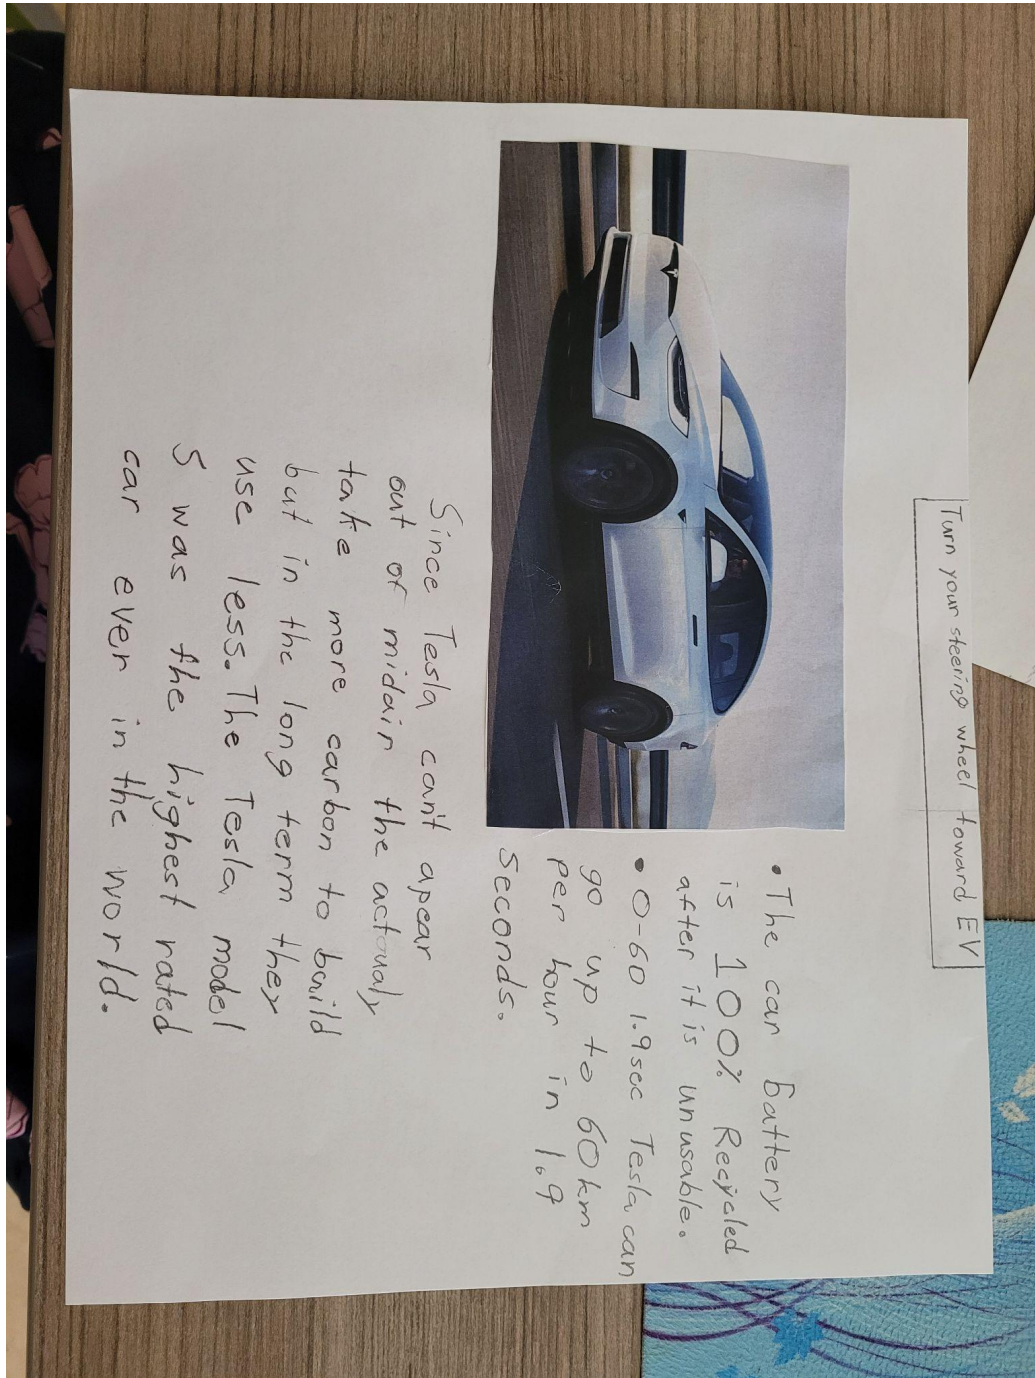 Turn your steering wheel toward EV
• The car battery
is 100% Recycled
after it is unusable.
• 0-60 1.9sec Tesla can
go up to 60km
per hour in 1.9
Seconds.
Since Tesla can't apear
out of midair the actualy
take more carbon to build
but in the long term they
use less. The Tesla model
S was the highest rated
car ever in the world.